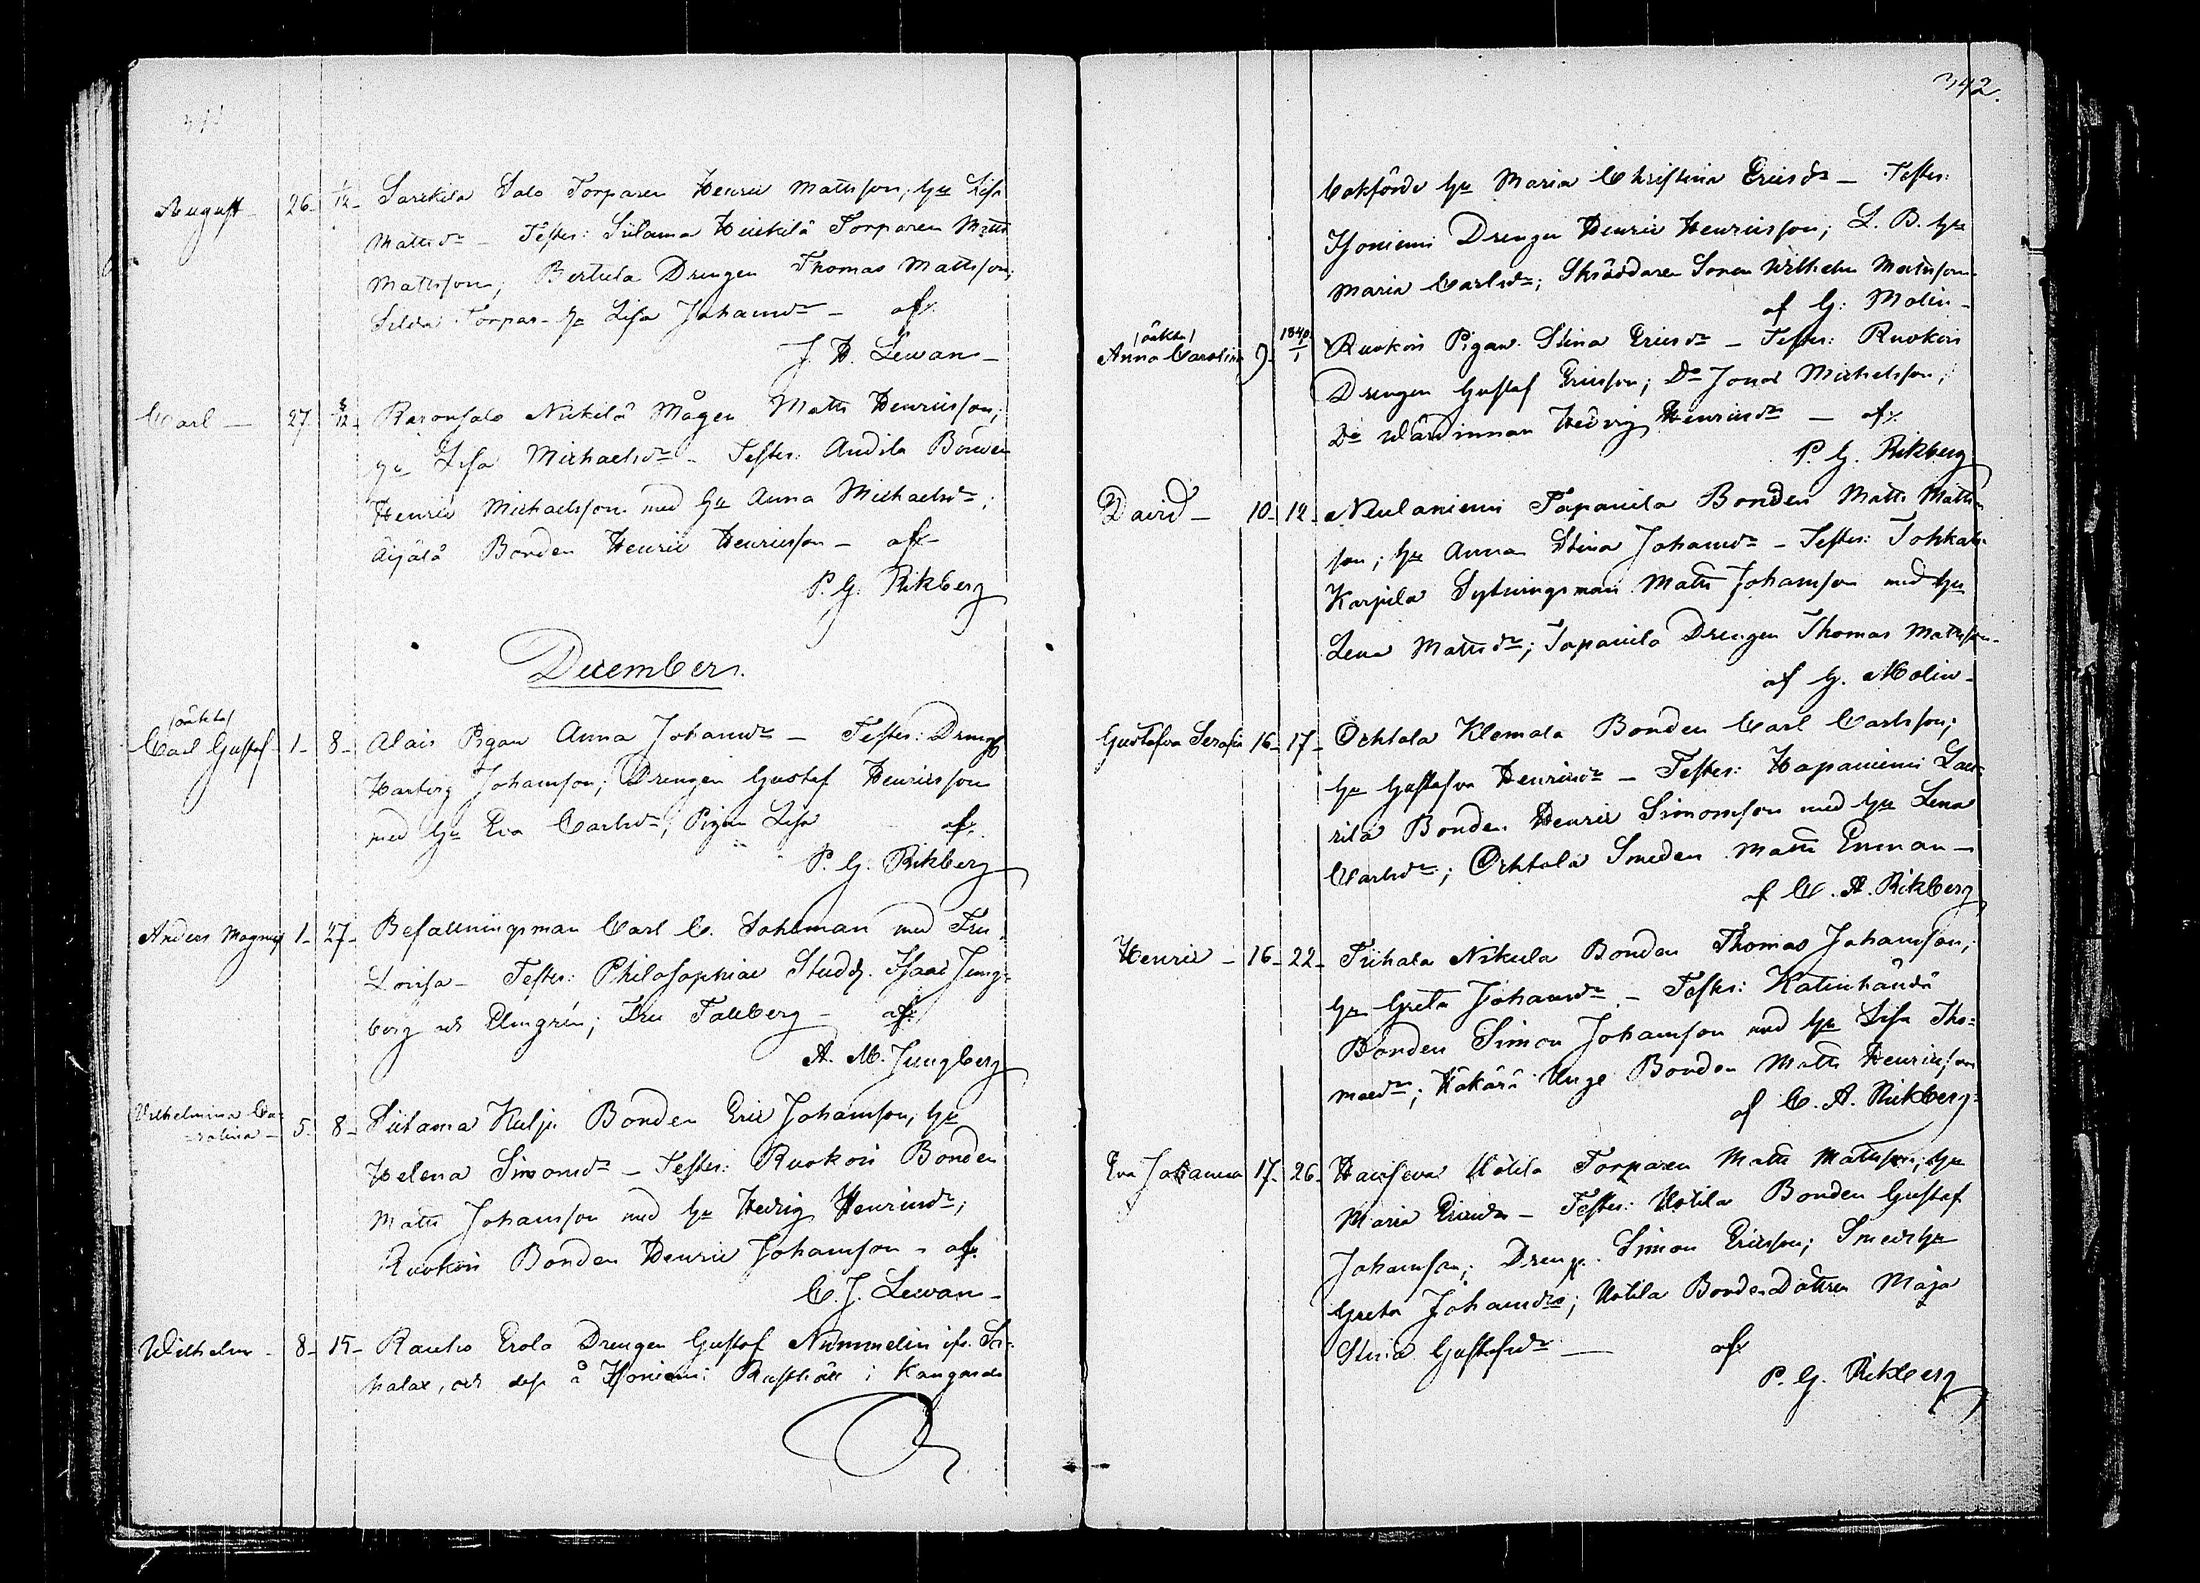 341
August - 26. 1/12 - Sarikila Salo Torparen Henric Mattsson; hu Lisa
Mattsdr - Testes: Siilama Heikilä Torparen Matts
Mattsson; Bertula Drengen Thomas Mattsson;
Torpar- hu Lisa Johansdr - af
J. H. Lewan -
Carl - 27. 3/12 - Raronsalo Nickilä Mågen Matts Henricsson;
hu Lisa Michaelsdr - Testes: Andila Bonden
Henric Michaelsson med hu Anna Michaelsdr;
Äijälä Bonden Henric Henricsson - af
P. G. Rikberg
December.
/oäkta/
Carl Gustaf - 1 - 8 - Alais Pigan Anna Johansdr - Testes: Dreng
Hartvig Johansson; Drengen Gustaf Henricsson
med hu Eva Carlsdr; Pigan Lisa af.
P. G. Rikberg
Anders Magnus 1 - 27 - Befallningsman Carl C. Sohlman med Fru
Lovisa - Testes: Philosophiae Studd. Isaac Jung-
berg och Elmgrén; Fru Fallberg - af
A. M. Jungberg
Wilhelmina Ca-
rolina - 5 - 8 - Siilama Kulju Bonden Eric Johansson, hu
Helena Simonsdr - Testes: Ruokois Bonden
Matts Johansson med hu Hedvig Henricsdr;
Ruokois Bonden Henric Johansson - af
C. J. Lewan -
Wilhelm - 8 - 15 - Rautio Erola Drengen Gustaf Nummelin ifr. Sa-
halax, och dess å Isoniemi Rusthåll i Kangasala
342.
hu Maria Christina Ericsdr - Testes:
Isoniemi Drengen Henric Henricsson; L. B. hu
Maria Carlsdr; Skräddaren Sonen Wilhelm Mattsson
af G. Molin -
/oäkta/
Anna Carolina 9 - 1840/1 Ruokois Pigan Stina Ericsdr - Testes: Ruokois
Drengen Gustaf Ericsson; Do Jonas Michelsson;
Do Wärdinnan Hedvig Henricsdr - af
P. G. Rikberg
David - 10 - 12 - Neulaniemi Tapanila Bonden Matts Matts-
son; hu Anna Stina Johansdr - Testes: Tohkala
Karjula Sytningsman Matts Johansson med hu
Lena Mattsdr; Tapanila Drengen Thomas Mattsson.
af G. Molin -
Gustafva Serafia 16 - 17 - Ochtola Klemola Bonden Carl Carlsson;
hu Gustafva Henricsdr - Testes: Hapaniemi Lau-
rila Bonden Henric Simonsson med hu Lena
Carlsdr; Ochtola Smeden Matts Enman -
af C. A. Rikberg
Henric - 16 - 22 - Tiihala Nikula Bonden Thomas Johansson;
hu Greta Johansdr - Testes: Katinhändä
Bonden Simon Johansson med hu Lisa Tho-
masdr; Häkärä Unge Bonden Matts Henricsson
af C. A. Rikberg -
Eva Johanna 17 - 26 - Uotila Torparen Matts Mattsson; hu
Maria Ericsdr - Testes: Uotila Bonden Gustaf
Johansson; Dreng. Simon Ericsson; Smeds hu
Greta Johansdr; Uotila Bonden Dottren Maja
Stina Gustafsdr - af
P. G. Rikberg